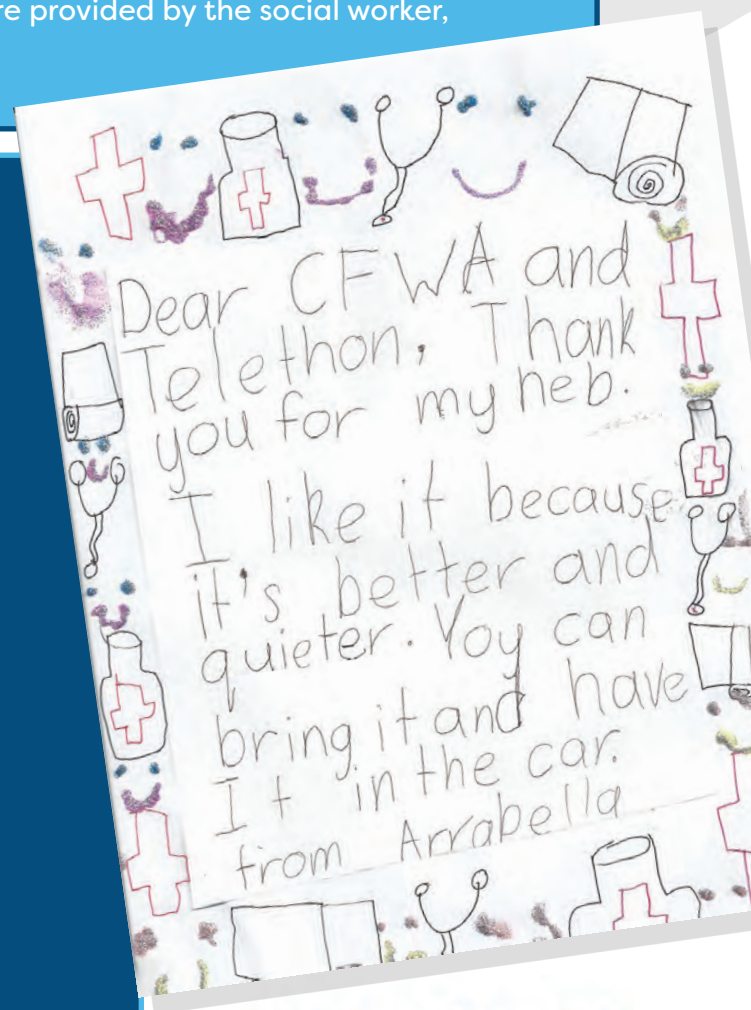 re provided by the social worker,
Dear CFWA and
Telethon, Thank
you for my neb.
I like it because
it's better and
quieter. Yoy can
bring it and have
It in the car.
from Arrabella.